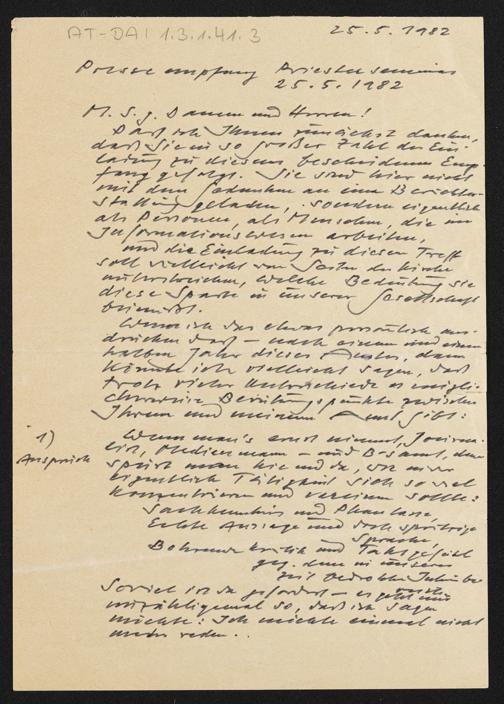 AT-DAI 1.3.1.41.3
25.5.1982
Presseempfang Priesterseminar
25.5.1982
M. s. g. Damen und Herren!
Darf ich Ihnen zunächst danken,
daß Sie in so großer Zahl der Ein-
ladung zu diesem bescheidenen Emp-
fang gefolgt. Sie sind hier nicht
mit dem Gedanken an eine Berichter-
stattung geladen, sondern eigentlich
als Personen, als Menschen, die im
Informationswesen arbeiten,
und die Einladung zu diesem Treff
soll vielleicht von Seiten der Kirche
unterstreichen, welche Bedeutung sie
diese Sparte in unserer Gesellschaft
beimißt.
Wenn ich das etwas persönlich aus-
drücken darf – nach einem und einem
halben Jahr dieses Amtes, dann
könnte ich vielleicht sagen, daß
trotz vieler Unterschiede es einige
Berührungspunkte zwischen
Ihrem und meinem Amt gibt:
1)
Anspruch
Wenn man's ernst nimmt, Journa-
list, Medienmann – und Bischof, dann
spürt man hie und da, was in der
eigentlich Tätigkeit sich so viel
konzentrieren und vereinen sollte:
Sachkenntnis und Phantasie
Echte Aussage und doch spritzige
Sprache
Bohrende Kritik und Taktgefühl
geg. dem in unserer
Zeit bedrohte
Soviel ist da gefordert – es geht
unzähligemal so, daß ich sagen
möchte: Ich möchte einmal nicht
mehr reden..